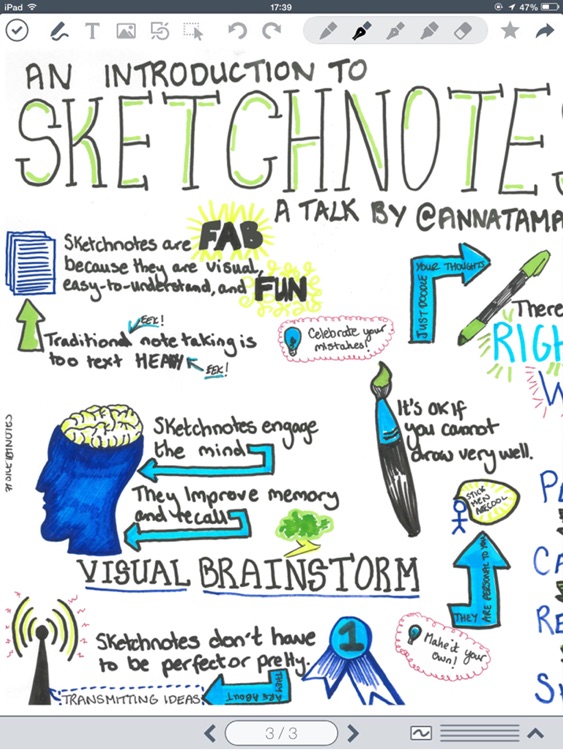 iPad
17:39
47%
AN INTRODUCTION TO
SKETCHNOTES
A TALK BY @ANNATAMA
Sketchnotes are FAB
because they are visual,
easy-to-understand, and FUN
JUST DOODLE
YOUR THOUGHTS
There
RIGH
W
EEK!
Traditional note taking is
too text HEAVY
EEK!
Celebrate your
mistakes!
Sketchnotes engage
the mind
They improve memory
and recall
It's OK if
you cannot
draw very well.
STICK
MEN
ARE COOL
VISUAL BRAINSTORM
THEY
ARE PERSONAL TO YOU
PE
CA
RE
Sketchnotes don't have
to be perfect or pretty.
THEY
ARE ABOUT
TRANSMITTING IDEAS
1
Make it your
own!
3/3